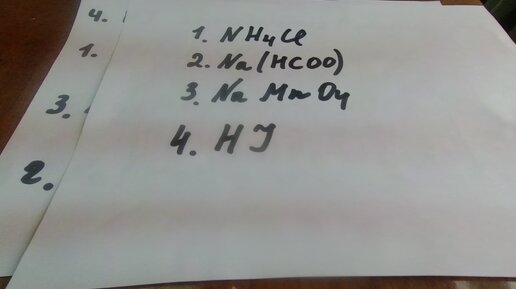 4.
1.
3.
2.
1. NH4Cl
2. Na(HCOO)
3. Na MnO4
4. HJ